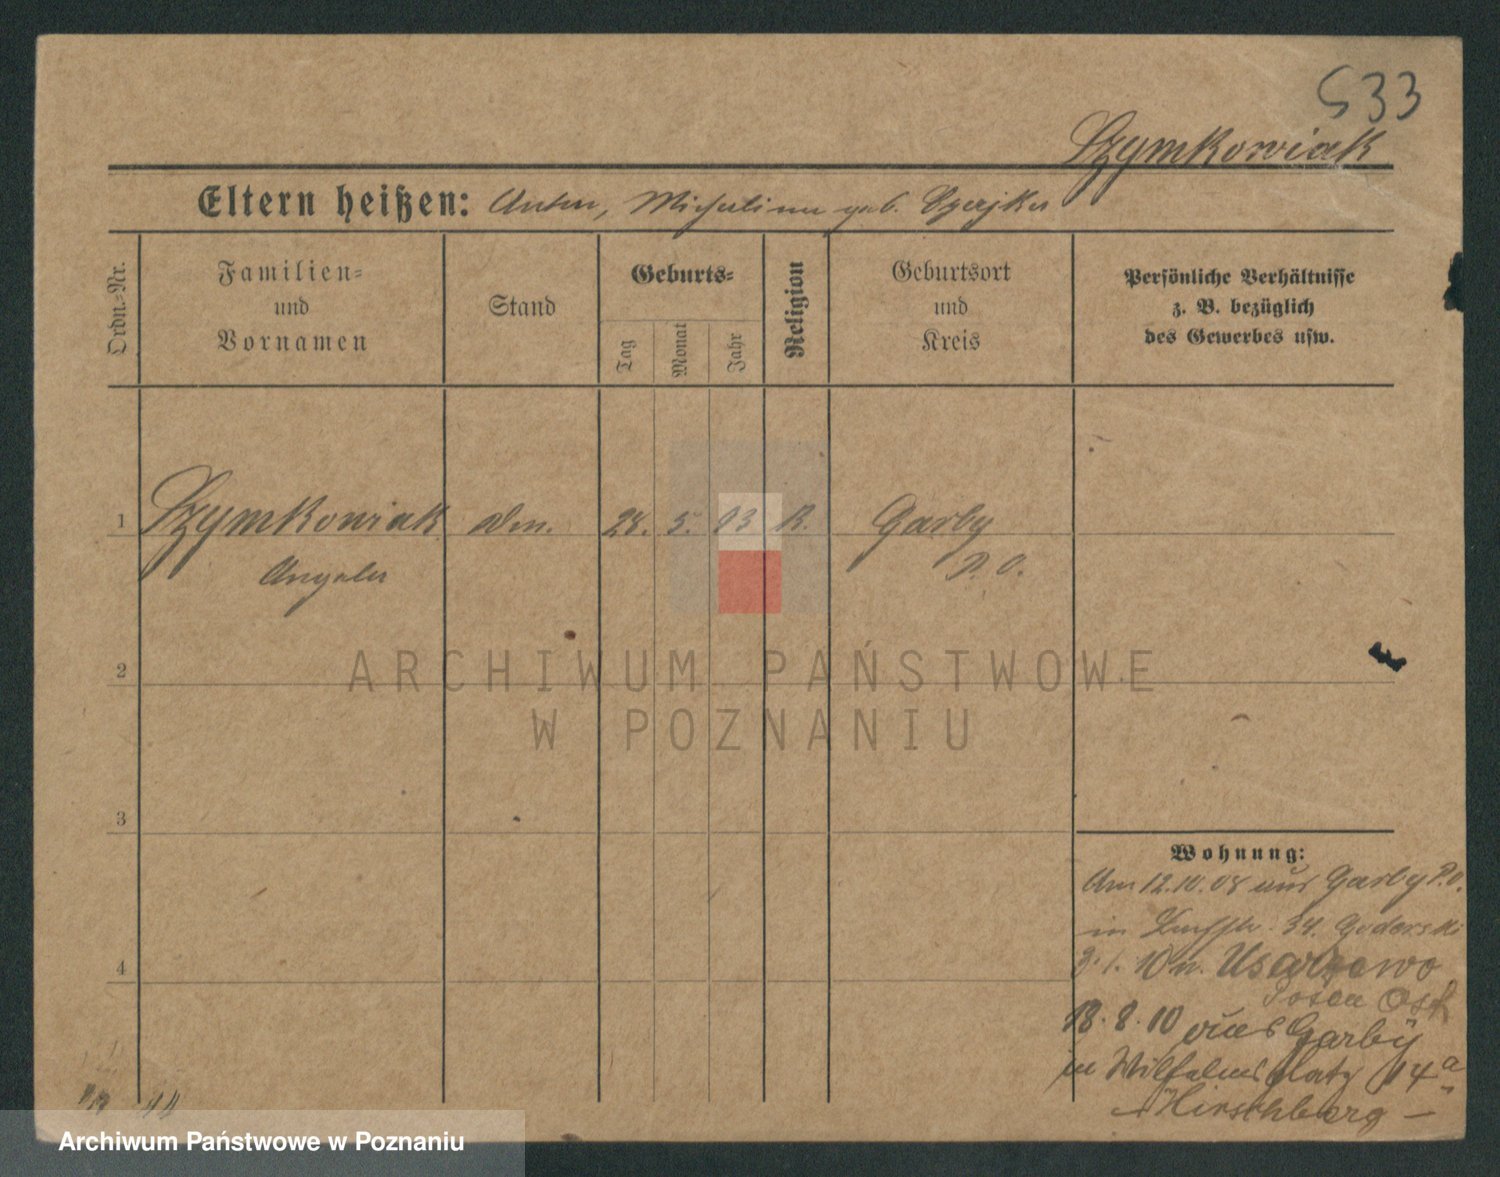 533
Szymkowiak
Eltern heißen: Anton, Michalina geb. Szejka
Ordn.-Nr.
Familien-
und
Vornamen
Stand
Geburts-
Tag
Monat
Jahr
Religion
Geburtsort
und
Kreis
Persönliche Verhältnisse
z. B. bezüglich
des Gewerbes usw.
1 Szymkowiak 28. 5. 93 K. Garby
Angela P. O.
2
ARCHIWUM PAŃSTWOWE
W POZNANIU
3
4
Wohnung:
Am 12.10.08 aus Garby P.O.
in 34. Goderski
3.1.10 n. Usarzewo
Posen Ost
18.8.10 aus Garby
in Wilhelmsplatz 14a
Hirschberg –
Archiwum Państwowe w Poznaniu